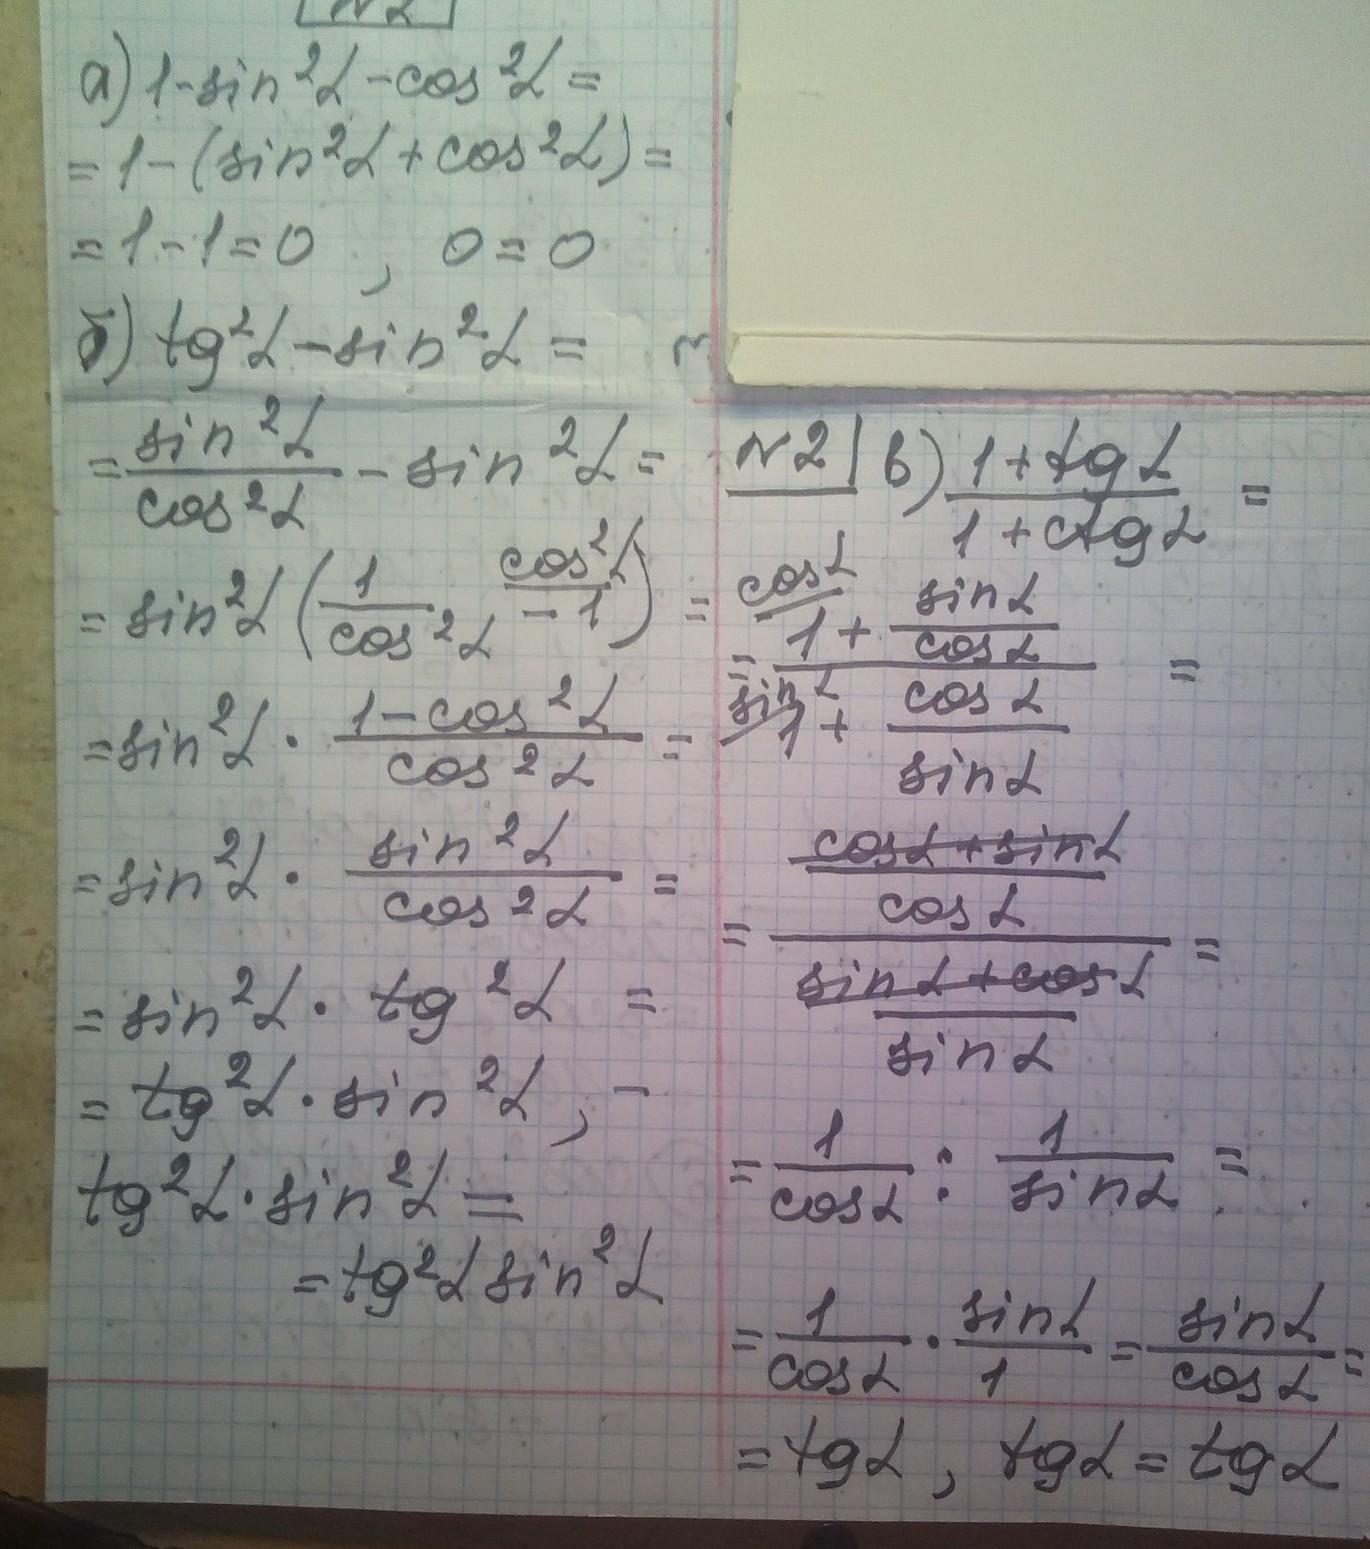 №2
а) 1-sin²α-cos²α=
=1-(sin²α+cos²α)=
=1-1=0, 0=0
б) tg²α-sin²α=
=sin²α/cos²α-sin²α=
=sin²α(1/cos²α - 1 cos²α/)=
=sin²α·(1-cos²α)/cos²α=
=sin²α·sin²α/cos²α=
=sin²α·tg²α=
=tg²α·sin²α, -
tg²α·sin²α=
=tg²α sin²α
№2 в) (1+tgα)/(1+ctgα)=
=(cosα/ 1+sinα/cosα)/(sinα/ 1+cosα/sinα)=
=((cosα+sinα)/cosα)/((sinα+cosα)/sinα)=
=1/cosα : 1/sinα=
=1/cosα·sinα/1=sinα/cosα=
=tgα, tgα=tgα